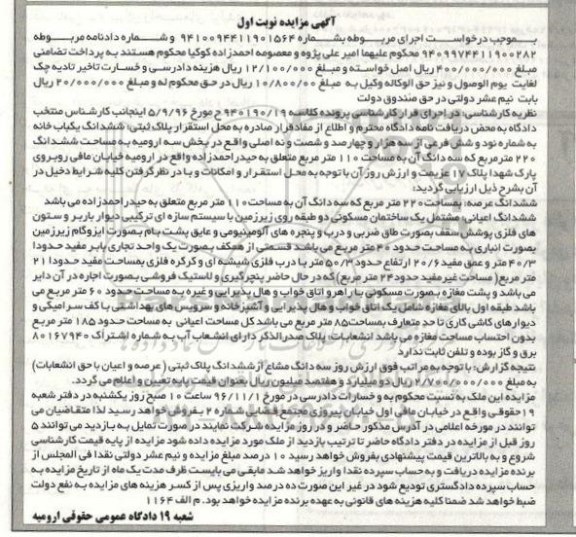 آگهی مزایده نوبت اول
بموجب درخواست اجرای مربوطه بشماره ۹۴۱۰۰۹۴۴۱۱۹۰۱۵۶۴ و شماره دادنامه مربوطه
۹۴۰۹۹۷۴۴۱۱۹۰۰۲۸۲ محکوم علیهما امیر علی پژوه و معصومه احمدزاده کوکیا محکوم هستند به پرداخت تضامنی
مبلغ ۴۰۰/۰۰۰/۰۰۰ ریال اصل خواسته و مبلغ ۱۲/۱۰۰/۰۰۰ ریال هزینه دادرسی و خسارت تاخیر تادیه چک
لغایت یوم الوصول و نیز حق الوکاله وکیل به مبلغ ۱۰/۸۰۰/۰۰ ریال در حق محکوم له و مبلغ ۲۰/۰۰۰/۰۰۰ ریال
بابت نیم عشر دولتی در حق صندوق دولت
نظریه کارشناسی: در اجرای قرار کارشناسی پرونده کلاسه ۹۴۰۱۹۰/۱۹ ح مورخ ۵/۹/۹۶ اینجانب کارشناس منتخب
دادگاه به محض دریافت نامه دادگاه محترم و اطلاع از مفاد قرار صادره به محل استقرار پلاک ثبتی ششدانگ یکباب خانه
به شماره نود و شش فرعی از سه هزار و چهارصد و شصت و نه اصلی واقع در بخش سه ارومیه به مساحت ششدانگ
۲۲۰ متر مربع که سه دانگ آن به مساحت ۱۱۰ متر مربع متعلق به حیدر احمدزاده واقع در ارومیه خیابان مافی روبروی
پارک شهدا پلاک ۱۷ عزیمت و ارزش روز آن با توجه به محل استقرار و امکانات و با در نظر گرفتن کلیه شرایط دخیل در
آن بشرح ذیل ارزیابی گردید:
ششدانگ عرصه: بمساحت ۲۲۰ متر مربع که سه دانگ آن به مساحت ۱۱۰ متر مربع متعلق به حیدر احمدزاده می باشد
ششدانگ اعیانی: مشتمل یک ساختمان مسکونی دو طبقه روی زیرزمین با سیستم سازه ای ترکیبی دیوار باربر و ستون
های فلزی پوشش سقف بصورت طاق ضربی و درب و پنجره های آلومینیومی و عایق پشت بام بصورت ایزوگام زیرزمین
بصورت انباری به مساحت حدود ۴۰ متر مربع می باشد قسمتی از همکف بصورت یک واحد تجاری بابر مفید حدودا
۴۰/۳ متر و عمق مفید ۲۰/۶ ارتفاع حدود ۵۰/۳ متر با درب فلزی شیشه ای و کرکره فلزی بمساحت مفید حدودا ۲۱
متر مربع (مساحت غیر مفید حدود ۲۴ متر مربع) که در حال حاضر پنچرگیری و لاستیک فروشی بصورت اجاره در آن دایر
می باشد و پشت مغازه بصورت مسکونی با راهرو اتاق خواب و هال پذیرایی و غیره به مساحت حدود ۶۰ متر مربع می
باشد طبقه اول بالای مغازه شامل یک اتاق خواب و هال پذیرایی و آشپزخانه و سرویس های بهداشتی با کف سرامیکی و
دیوارهای کاشی کاری تا حد متعارف بمساحت ۸۵ متر مربع می باشد کل مساحت اعیانی به مساحت حدود ۱۸۵ متر مربع
بدون احتساب مساحت مغازه می باشد انشعابات: پلاک صدرالذکر دارای انشعاب آب به شماره اشتراک ۸۰۱۶۷۹۴۰
برق و گاز بوده و تلفن ثابت ندارد
نتیجه گزارش: با توجه به مراتب فوق ارزش روز سه دانگ مشاع از ششدانگ پلاک ثبتی (عرصه و اعیان با حق انشعابات)
به مبلغ ۲/۷۰۰/۰۰۰/۰۰۰ ریال دو میلیارد و هفتصد میلیون ریال بعنوان قیمت پایه تعیین و اعلام می گردد.
مزایده این ملک به نسبت محکوم به و خسارات دادرسی در مورخ ۹۶/۱۱/۱ ساعت ۱۰ صبح روز یکشنبه در دفتر شعبه
۱۹ حقوقی واقع در خیابان مافی اول خیابان پیروزی مجتمع قضایی شماره ۲ بفروش خواهد رسید لذا متقاضیان می
توانند در مورخه اعلامی در آدرس مذکور حاضر و در روز مزایده شرکت نمایند در صورت تمایل به بازدید می توانند ۵
روز قبل از مزایده در دفتر دادگاه حاضر تا ترتیب بازدید از ملک مورد مزایده داده شود مزایده از پایه قیمت کارشناسی
شروع و به بالاترین قیمت پیشنهادی بفروش خواهد رسید ۱۰ درصد مبلغ مزایده و نیم عشر دولتی نقدا فی المجلس از
برنده مزایده دریافت و به حساب سپرده نقدا واریز خواهد شد مابقی می بایست ظرف مدت یک ماه از تاریخ مزایده به
حساب سپرده دادگستری تودیع شود در غیر این صورت ده درصد واریزی پس از کسر هزینه های مزایده به نفع دولت
ضبط خواهد شد ضمنا کلیه هزینه های قانونی به عهده برنده مزایده خواهد بود. م الف ۱۱۶۴
شعبه ۱۹ دادگاه عمومی حقوقی ارومیه